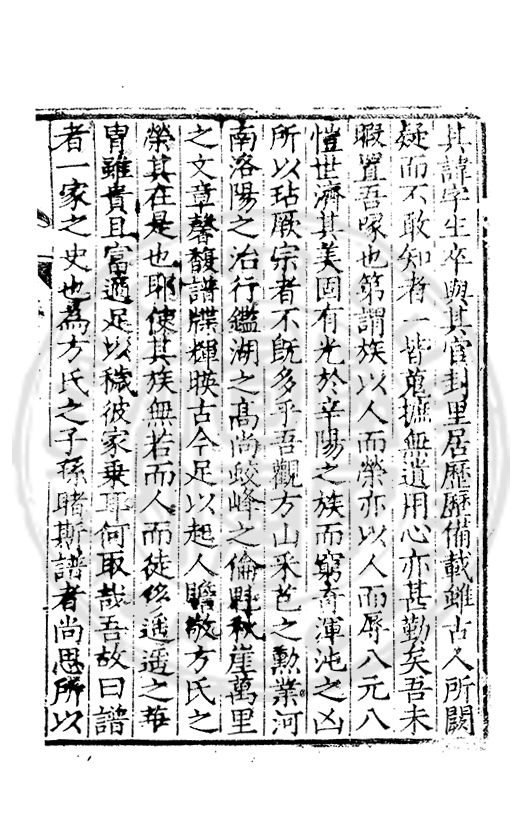 其諱字生卒與其官封里居歷歷備載雖古人所闕
疑而不敢知者一皆蒐摭無遺用心亦甚勤矣吾未
暇置吾喙也第謂族以人而榮亦以人而辱八元八
愷世濟其美固有光於辛陽之族而窮奇渾沌之凶
所以玷厥宗者不旣多乎吾觀方山采芑之勳業河
南洛陽之治行鑑湖之高尚蛟峰之倫魁秋崖萬里
之文章馨馥譜牒輝暎古今足以起人瞻敬方氏之
榮其在是也耶使其族無若而人而徒侈遥遥之華
胄雖貴且富適足以穢彼家乗耳何取哉吾故曰譜
者一家之史也為方氏之子孫睹斯譜者尚思所以